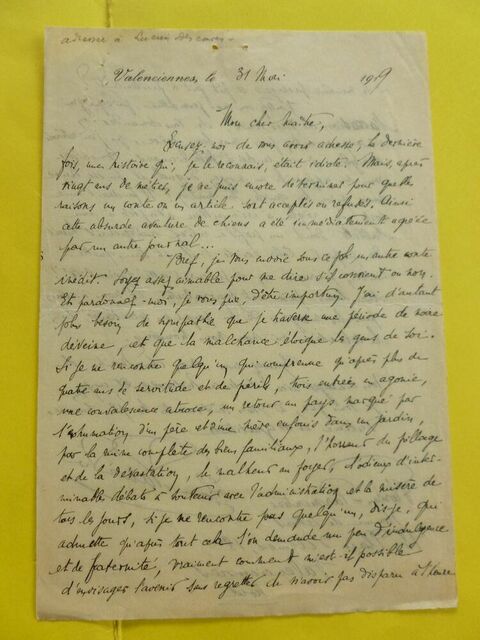 adressée à Lucien Descaves.
Valenciennes le 31 Mai 1919
Mon cher maître,
Excusez-moi de vous avoir adressé, la dernière
fois, une histoire qui, je le reconnais, était idiote. Mais, après
vingt ans de métier, je ne puis encore déterminer pour quelles
raisons un conte ou un article sont acceptés ou refusés. Ainsi
cette absurde aventure de chiens a été immédiatement agréée
par un autre journal...
Bref, je vous envoie sous ce pli un autre conte
inédit. Soyez assez aimable pour me dire s'il convient ou non.
Et pardonnez-moi, je vous prie, d'être importun. J'ai d'autant
plus besoin de sympathie que je traverse une période de noire
déveine, et que la malchance éloigne les gens de soi.
Si je ne rencontre quelqu'un qui comprenne qu'après plus de
quatre ans de servitude et de périls, trois entrées en agonie,
une convalescence atroce, un retour au pays marqué par
l'exhumation d'un père et d'une mère enfouis dans un jardin,
par la ruine complète des biens familiaux, l'horreur du pillage
et de la dévastation, le malheur au foyer, d'odieux d'inter-
minables débats à soutenir avec l'administration et la misère de
tous les jours, si je ne rencontre pas quelqu'un, dis-je, qui
admette qu'après tout cela l'on demande un peu d'indulgence
et de fraternité, vraiment comment m'est-il possible
d'envisager l'avenir sans regretter de n'avoir pas disparu à l'heure